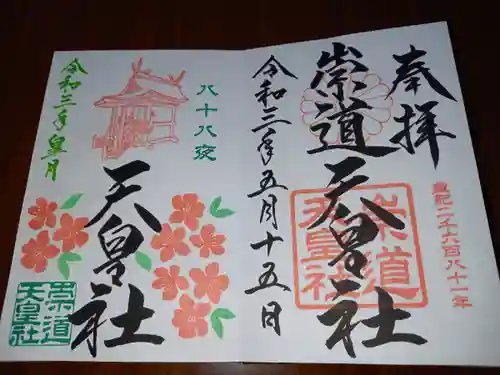 奉拝
崇道天皇社
崇道
天皇社
皇紀二千六百八十一年
令和三年五月十五日
八十八夜
天皇社
令和三年皐月
崇道
天皇社